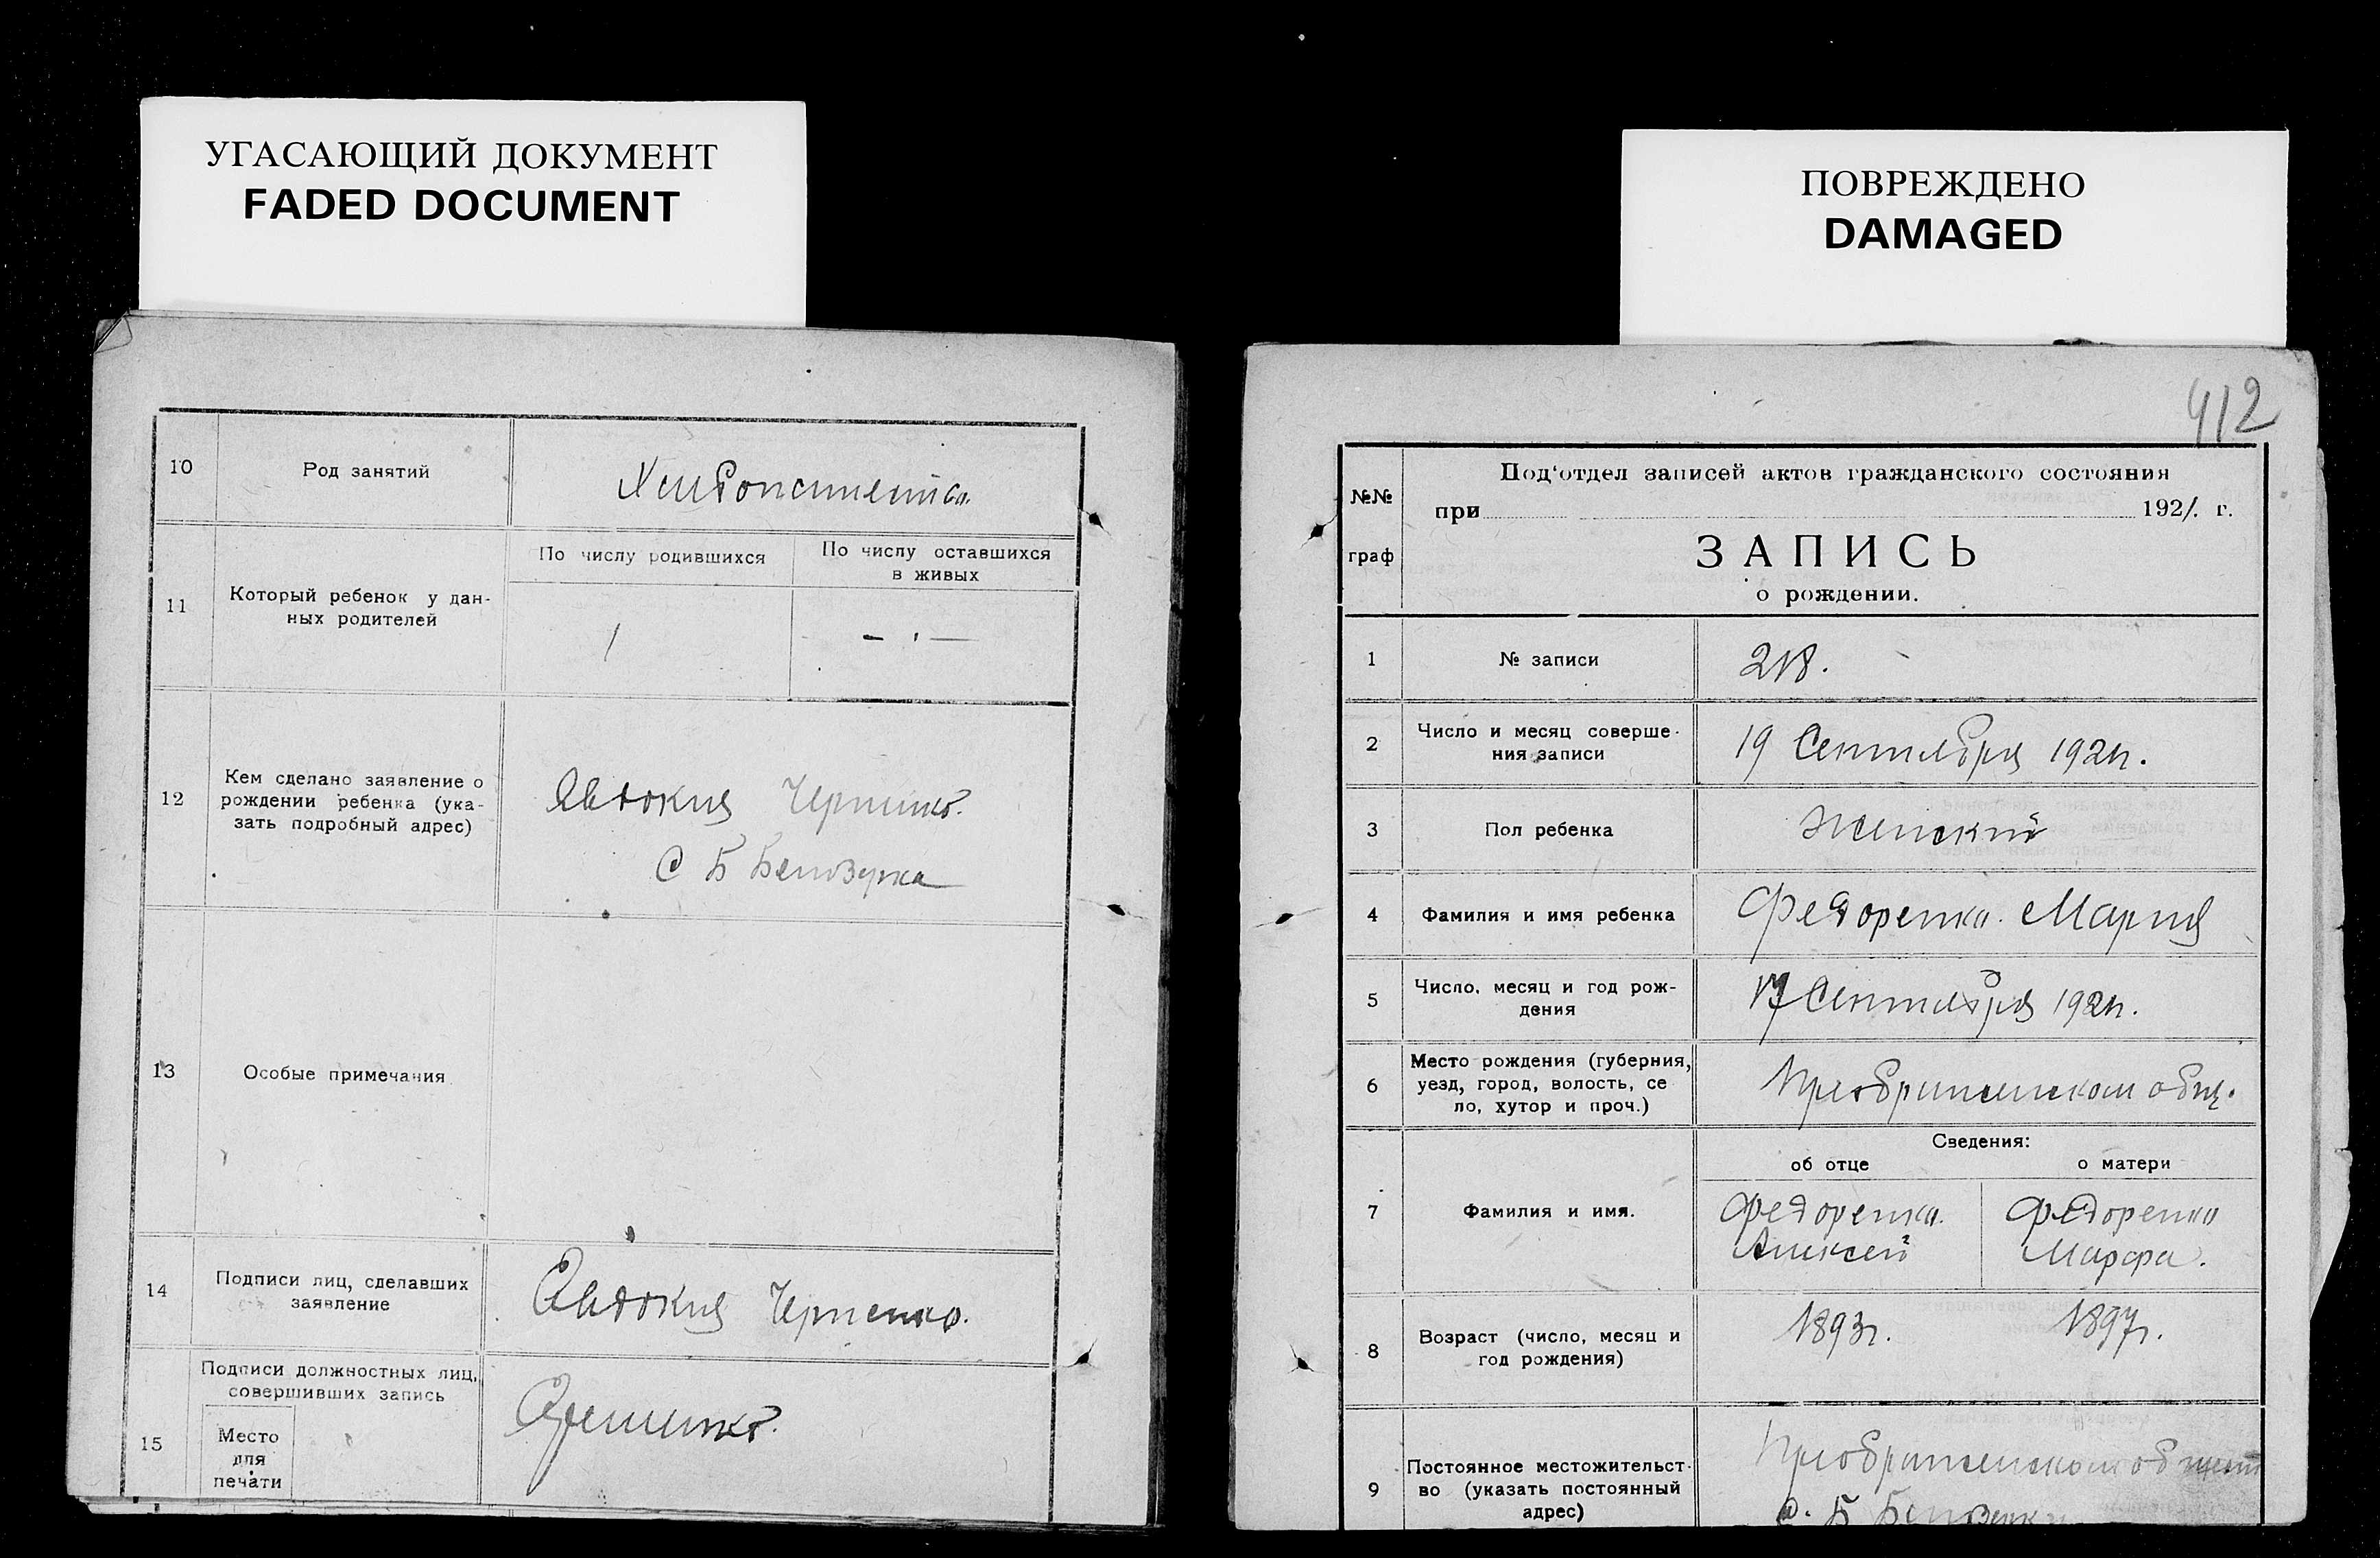 УГАСАЮЩИЙ ДОКУМЕНТ
FADED DOCUMENT
10
Род занятий
Хлибопашество.
11
Который ребенок у дан-
ных родителей
По числу родившихся
По числу оставшихся
в живых
1
— „ —
12
Кем сделано заявление о
рождении ребенка (ука-
зать подробный адрес)
Авдокия
С Б Белозурка
13
Особые примечания
14
Подписи лиц, сделавших
заявление
Авдокия
15
Подписи должностных лиц,
совершивших запись
Место
для
печати
ПОВРЕЖДЕНО
DAMAGED
412
№№
граф
Под'отдел записей актов гражданского состояния
при 1921. г.
ЗАПИСЬ
о рождении.
1
№ записи
218.
2
Число и месяц соверше-
ния записи
19 Сентября 1921г.
3
Пол ребенка
женский
4
Фамилия и имя ребенка
Федоренко. Мария
5
Число, месяц и год рож-
дения
17 Сентября 1921г.
6
Место рождения (губерния,
уезд, город, волость, се
ло, хутор и проч.)
Преображенском общ.
Сведения:
об отце
о матери
7
Фамилия и имя.
Федоренко.
Алексей
Федоренко
Марфа.
8
Возраст (число, месяц и
год рождения)
1893г.
1897г.
9
Постоянное местожительст-
во (указать постоянный
адрес)
Преображенском
с. Б